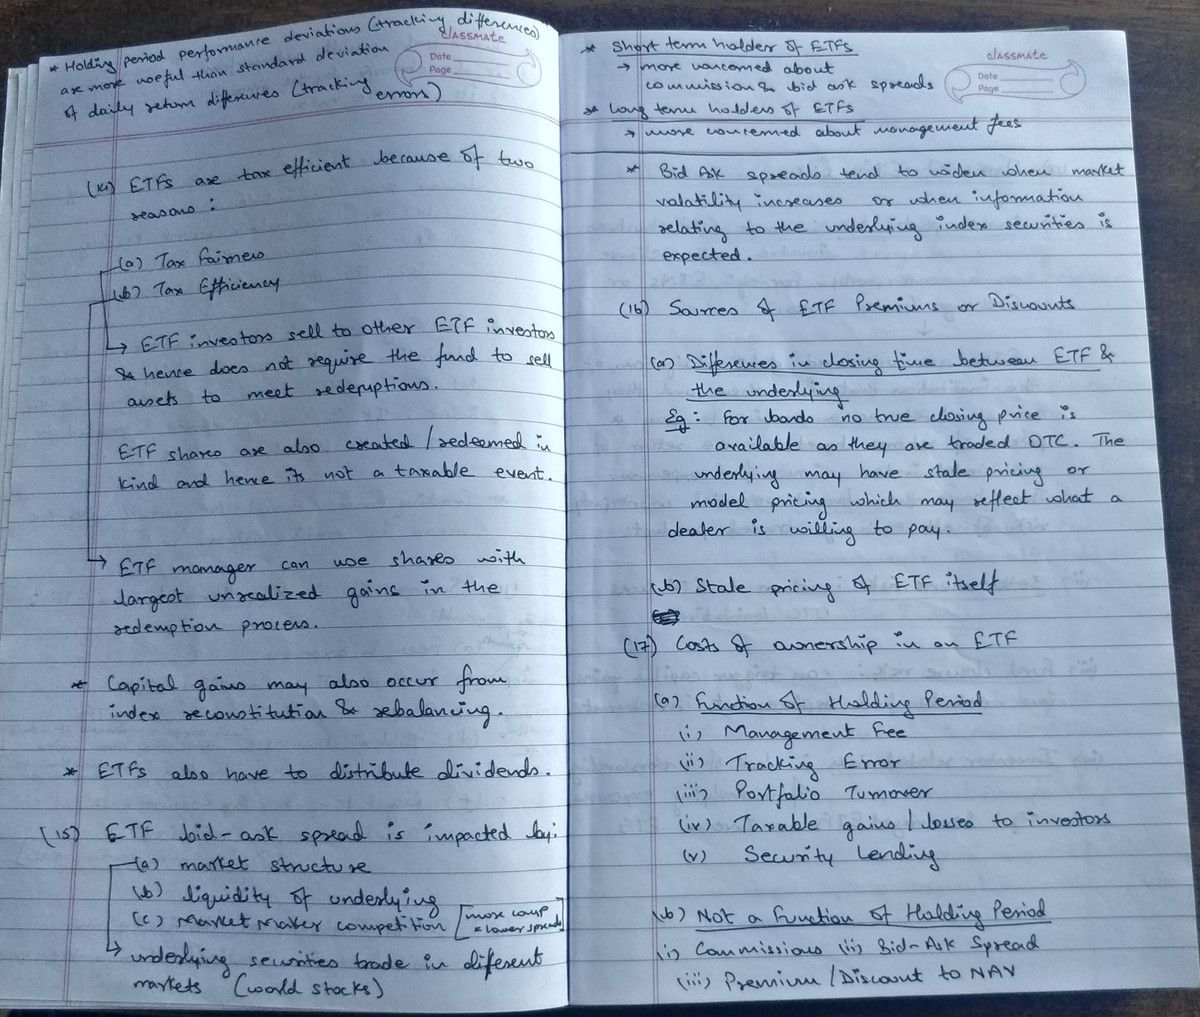 * Holding period performance deviations (tracking differences)
are more useful than standard deviation
of daily return differences (tracking
error)
CLASSMATE
Date
Page
ETFs are tax efficient because of two
reasons :
(a) Tax fairness
(b) Tax Efficiency
→ ETF investors sell to other ETF investors
& hence does not require the fund to sell
assets to meet redemptions.
ETF shares are also created / redeemed in
kind and hence its not a taxable event.
→ ETF manager can use shares with
largest unrealized gains in the
redemption process.
* Capital gains may also occur from
index reconstitution & rebalancing.
* ETFs also have to distribute dividends.
(15) ETF bid-ask spread is impacted by:
(a) market structure
(b) liquidity of underlying
(c) Market Maker competition [more comp
= lower spreads]
→ underlying securities trade in different
markets (world stocks)
* Short term holder of ETFs
→ more concerned about
commission & bid ask spreads
* Long term holders of ETFs
→ more concerned about management fees
CLASSMATE
Date
Page
* Bid Ask spreads tend to widen when market
volatility increases or when information
relating to the underlying index securities is
expected.
(16) Sources of ETF Premiums or Discounts
(a) Differences in closing time between ETF &
the underlying
Eg : For bonds no true closing price is
available as they are traded OTC. The
underlying may have stale pricing or
model pricing which may reflect what a
dealer is willing to pay.
(b) Stale pricing of ETF itself
(17) Costs of ownership in an ETF
(a) Function of Holding Period
(i) Management Fee
(ii) Tracking Error
(iii) Portfolio Turnover
(iv) Taxable gains / losses to investors
(v) Security Lending
(b) Not a Function of Holding Period
(i) Commissions (ii) Bid-Ask Spread
(iii) Premium / Discount to NAV